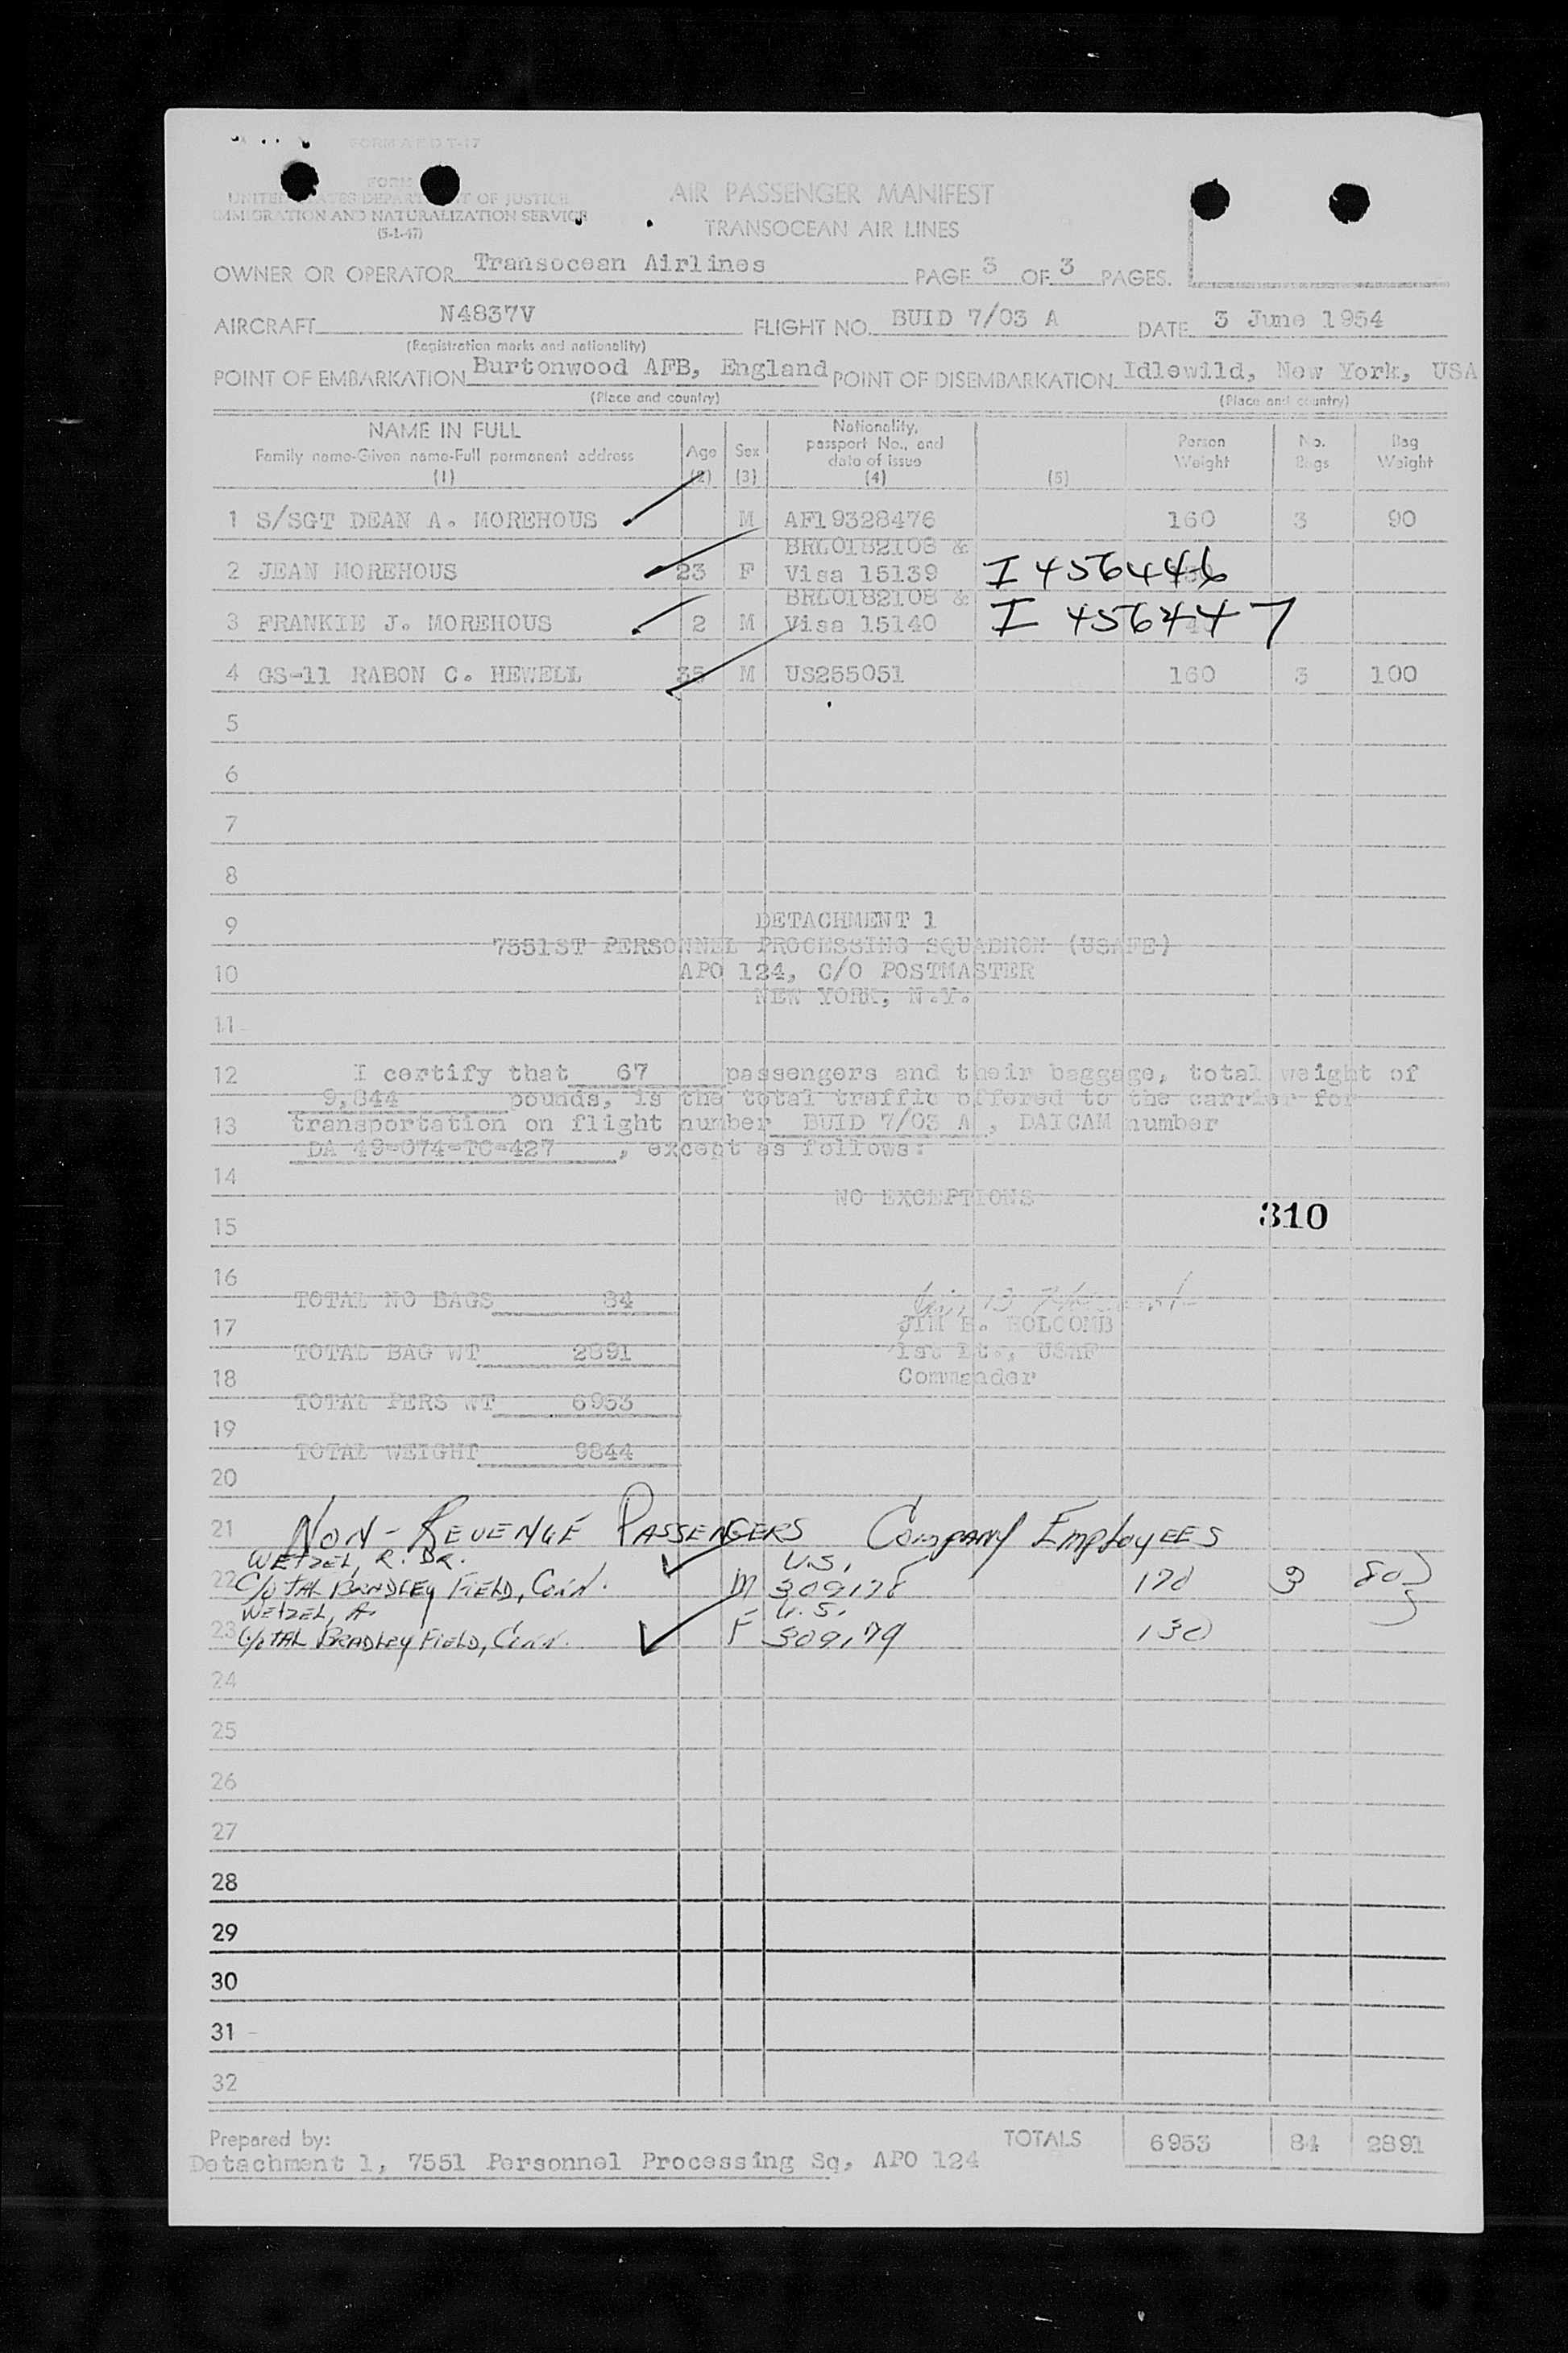 FORM A F D T-17
FORM
UNITED STATES DEPARTMENT OF JUSTICE
IMMIGRATION AND NATURALIZATION SERVICE
(5-1-47)
AIR PASSENGER MANIFEST
TRANSOCEAN AIR LINES
OWNER OR OPERATOR Transocean Airlines PAGE 3 OF 3 PAGES.
AIRCRAFT N4837V FLIGHT NO. BUID 7/03 A DATE 3 June 1954
(Registration marks and nationality)
POINT OF EMBARKATION Burtonwood AFB, England POINT OF DISEMBARKATION Idlewild, New York, USA
(Place and country) (Place and country)
NAME IN FULL
Family name-Given name-Full permanent address
(1)
Age
(2)
Sex
(3)
Nationality,
passport No., and
date of issue
(4)
(5)
Person
Weight
No.
Bags
Bag
Weight
1 S/SGT DEAN A. MOREHOUS M AF19328476 160 3 90
BRL0182108 &
2 JEAN MOREHOUS 23 F Visa 15139 I 456446
BRL0182108 &
3 FRANKIE J. MOREHOUS 2 M Visa 15140 I 456447
4 GS-11 RABON C. HEWELL 35 M US255051 160 3 100
5
6
7
8
9 DETACHMENT 1
7551ST PERSONNEL PROCESSING SQUADRON (USAFE)
10 APO 124, C/O POSTMASTER
NEW YORK, N.Y.
11
12 I certify that 67 passengers and their baggage, total weight of
9,844 pounds, is the total traffic offered to the carrier for
13 transportation on flight number BUID 7/03 A, DAICAM number
DA 49-074-TC-427, except as follows:
14
NO EXCEPTIONS
15 310
16
TOTAL NO BAGS 84
17 JIM B. HOLCOMB
TOTAL BAG WT 2891 1st Lt., USAF
18 Commander
TOTAL PERS WT 6953
19
TOTAL WEIGHT 9844
20
21 NON-REVENUE PASSENGERS COMPANY EMPLOYEES
WETZEL, R. DR. U.S.
22 C/O TAL BRADLEY FIELD, CONN. M 309178 170 3 80
WETZEL, A. U.S.
23 C/O TAL BRADLEY FIELD, CONN. F 309179 130
24
25
26
27
28
29
30
31
32
Prepared by: TOTALS 6953 84 2891
Detachment 1, 7551 Personnel Processing Sq, APO 124